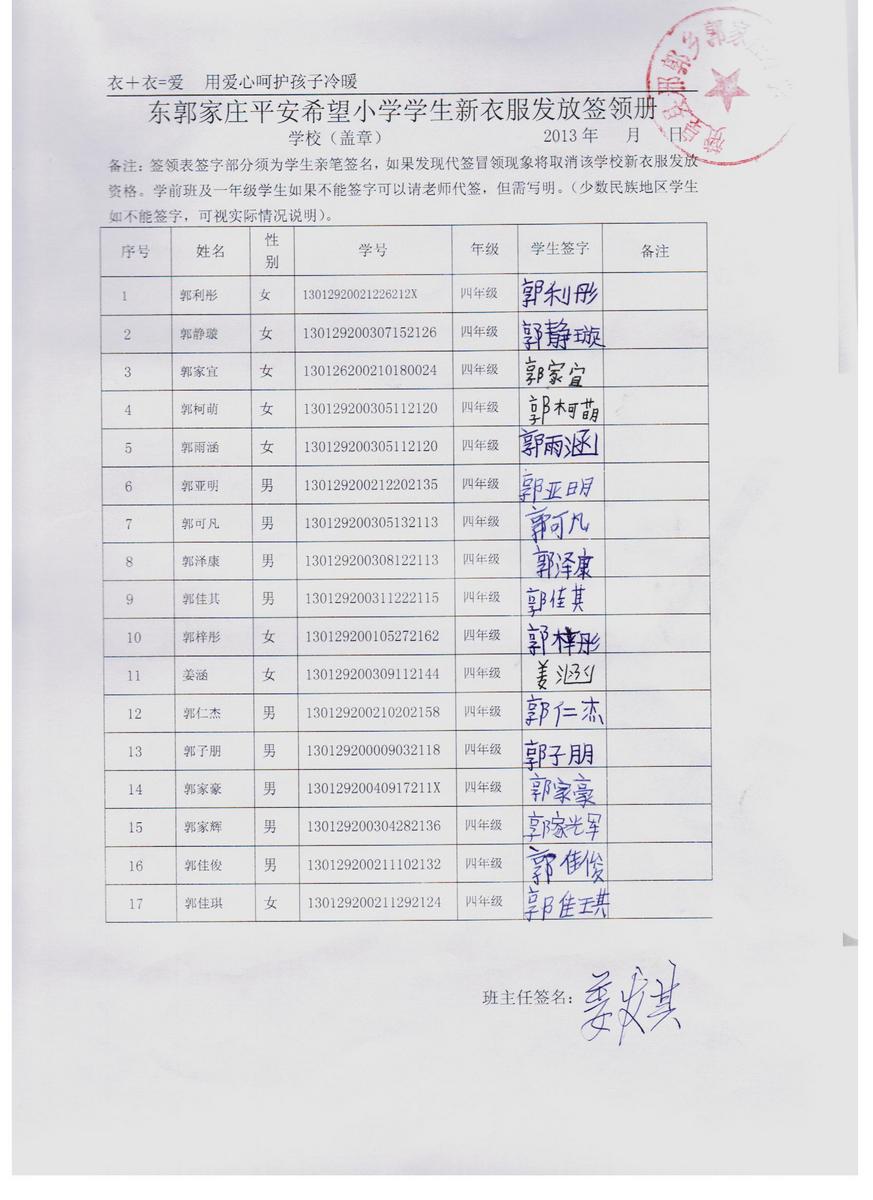 衣＋衣=爱 用爱心呵护孩子冷暖
东郭家庄平安希望小学学生新衣服发放签领册
学校（盖章） 2013 年 月 日
备注：签领表签字部分须为学生亲笔签名，如果发现代签冒领现象将取消该学校新衣服发放
资格。学前班及一年级学生如果不能签字可以请老师代签，但需写明。（少数民族地区学生
如不能签字，可视实际情况说明）。
序号 姓名 性别 学号 年级 学生签字 备注
1 郭利彤 女 13012920021226212X 四年级 郭利彤
2 郭静璇 女 130129200307152126 四年级 郭静璇
3 郭家宜 女 130126200210180024 四年级 郭家宜
4 郭柯萌 女 130129200305112120 四年级 郭柯萌
5 郭雨涵 女 130129200305112120 四年级 郭雨涵
6 郭亚明 男 130129200212202135 四年级 郭亚明
7 郭可凡 男 130129200305132113 四年级 郭可凡
8 郭泽康 男 130129200308122113 四年级 郭泽康
9 郭佳其 男 130129200311222115 四年级 郭佳其
10 郭梓彤 女 130129200105272162 四年级 郭梓彤
11 姜涵 女 130129200309112144 四年级 姜涵
12 郭仁杰 男 130129200210202158 四年级 郭仁杰
13 郭子朋 男 130129200009032118 四年级 郭子朋
14 郭家豪 男 13012920040917211X 四年级 郭家豪
15 郭家辉 男 130129200304282136 四年级 郭家辉
16 郭佳俊 男 130129200211102132 四年级 郭佳俊
17 郭佳琪 女 130129200211292124 四年级 郭佳琪
班主任签名：